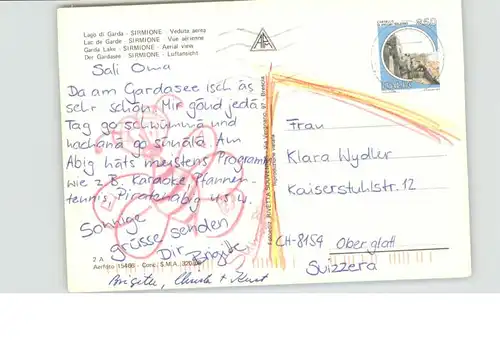 Lago di Garda - SIRMIONE - Veduta aerea
Lac de Garde - SIRMIONE - Vue aérienne
Garda Lake - SIRMIONE - Aerial view
Der Gardasee - SIRMIONE - Luftansicht
Sali Oma
Da am Gardasee isch äs
sehr schön. Mir gönd jedä
Tag go schwümmä und
nachanä go sünälä. Am
Abig häts meistens Programm
wie z.B. Karaoke, Pfannen-
tennis, Piratenabig u.s.w.
Sonnige
grüsse senden
Dir Brigitte
2 A
Brigitte,
850
Frau
Klara Wydler
Kaiserstuhlstr. 12
CH-8154 Oberglatt
Suizzera